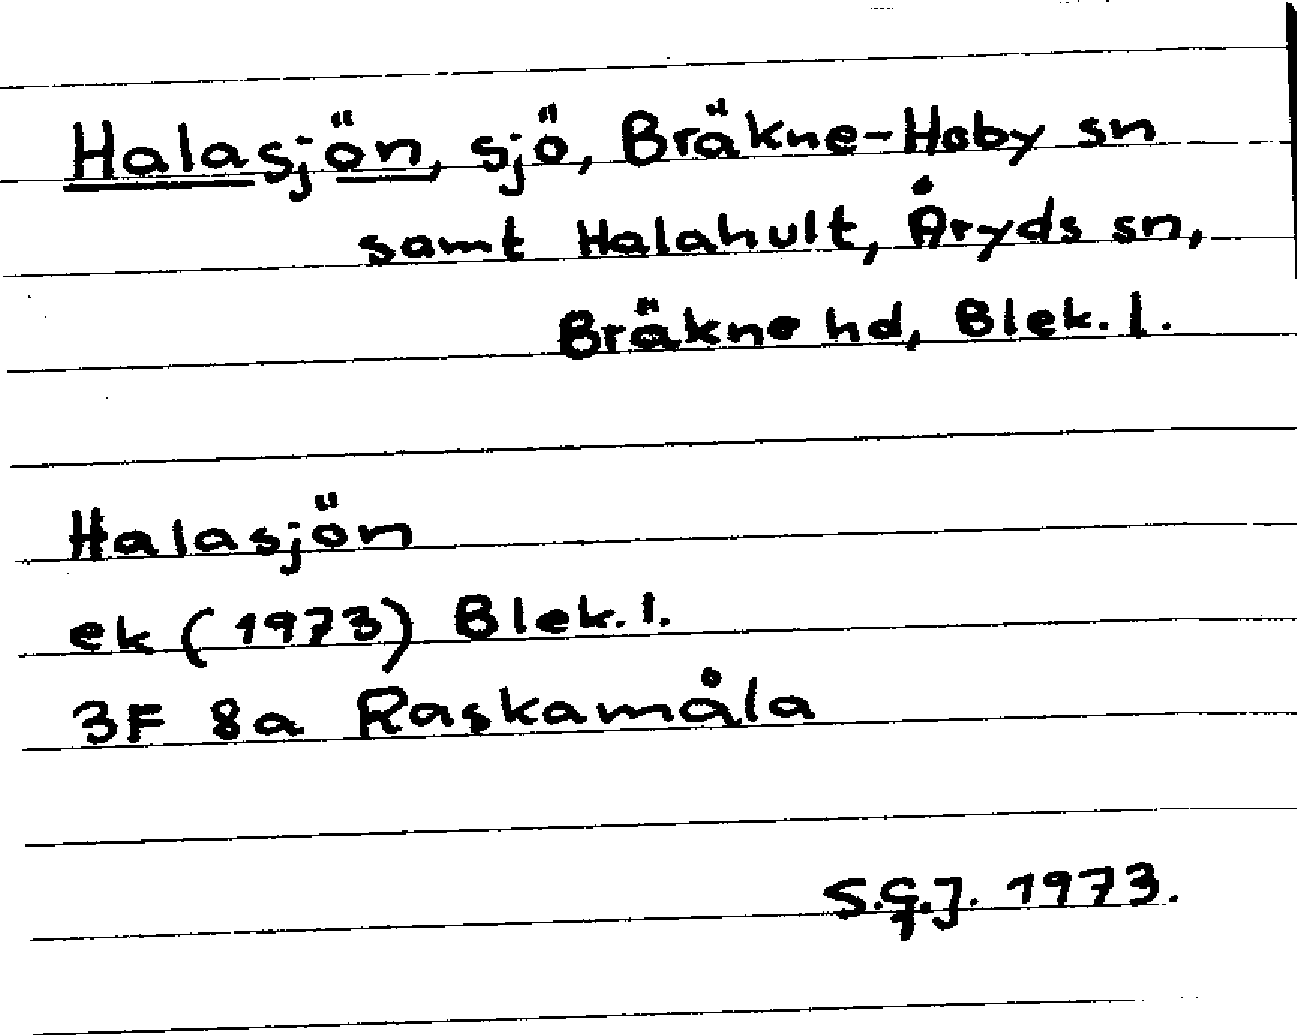 Halasjön, sjö, Bräkne-Hoby sn
samt Halahult, Åryds sn,
Bräkne hd, Blek. l.
Halasjön
ek (1973) Blek. l.
3F 8a Raskamåla
S.G.J. 1973.